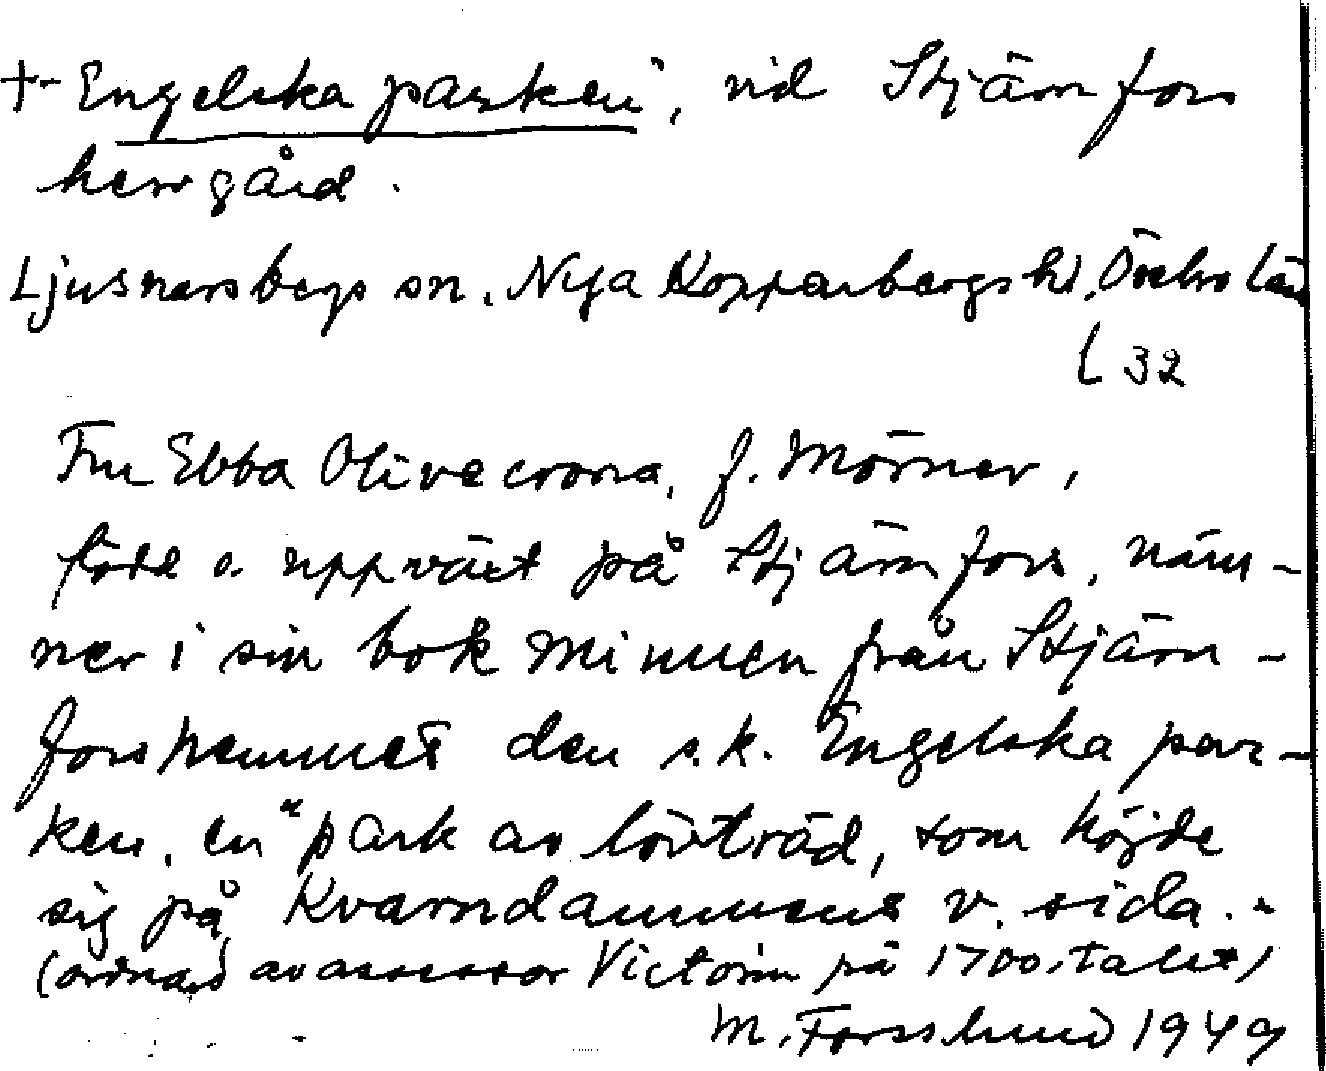 + "Engelska parken", vid Stjärnfors
herrgård.
Ljusnarsbergs sn. Nya Kopparbergs hd, Örebro län
32
Fru Ebba Olivecrona, f. Mörner,
född o. uppväxt på Stjärnfors, näm-
ner i sin bok Minnen från Stjärn-
forshemmet den s.k. Engelska par-
ken, en "park av lövträd, som höjde
sig på Kvarndammens v. sida."
(ordnad av assessor Victorin på 1700-talet)
M. Forsslund 1949